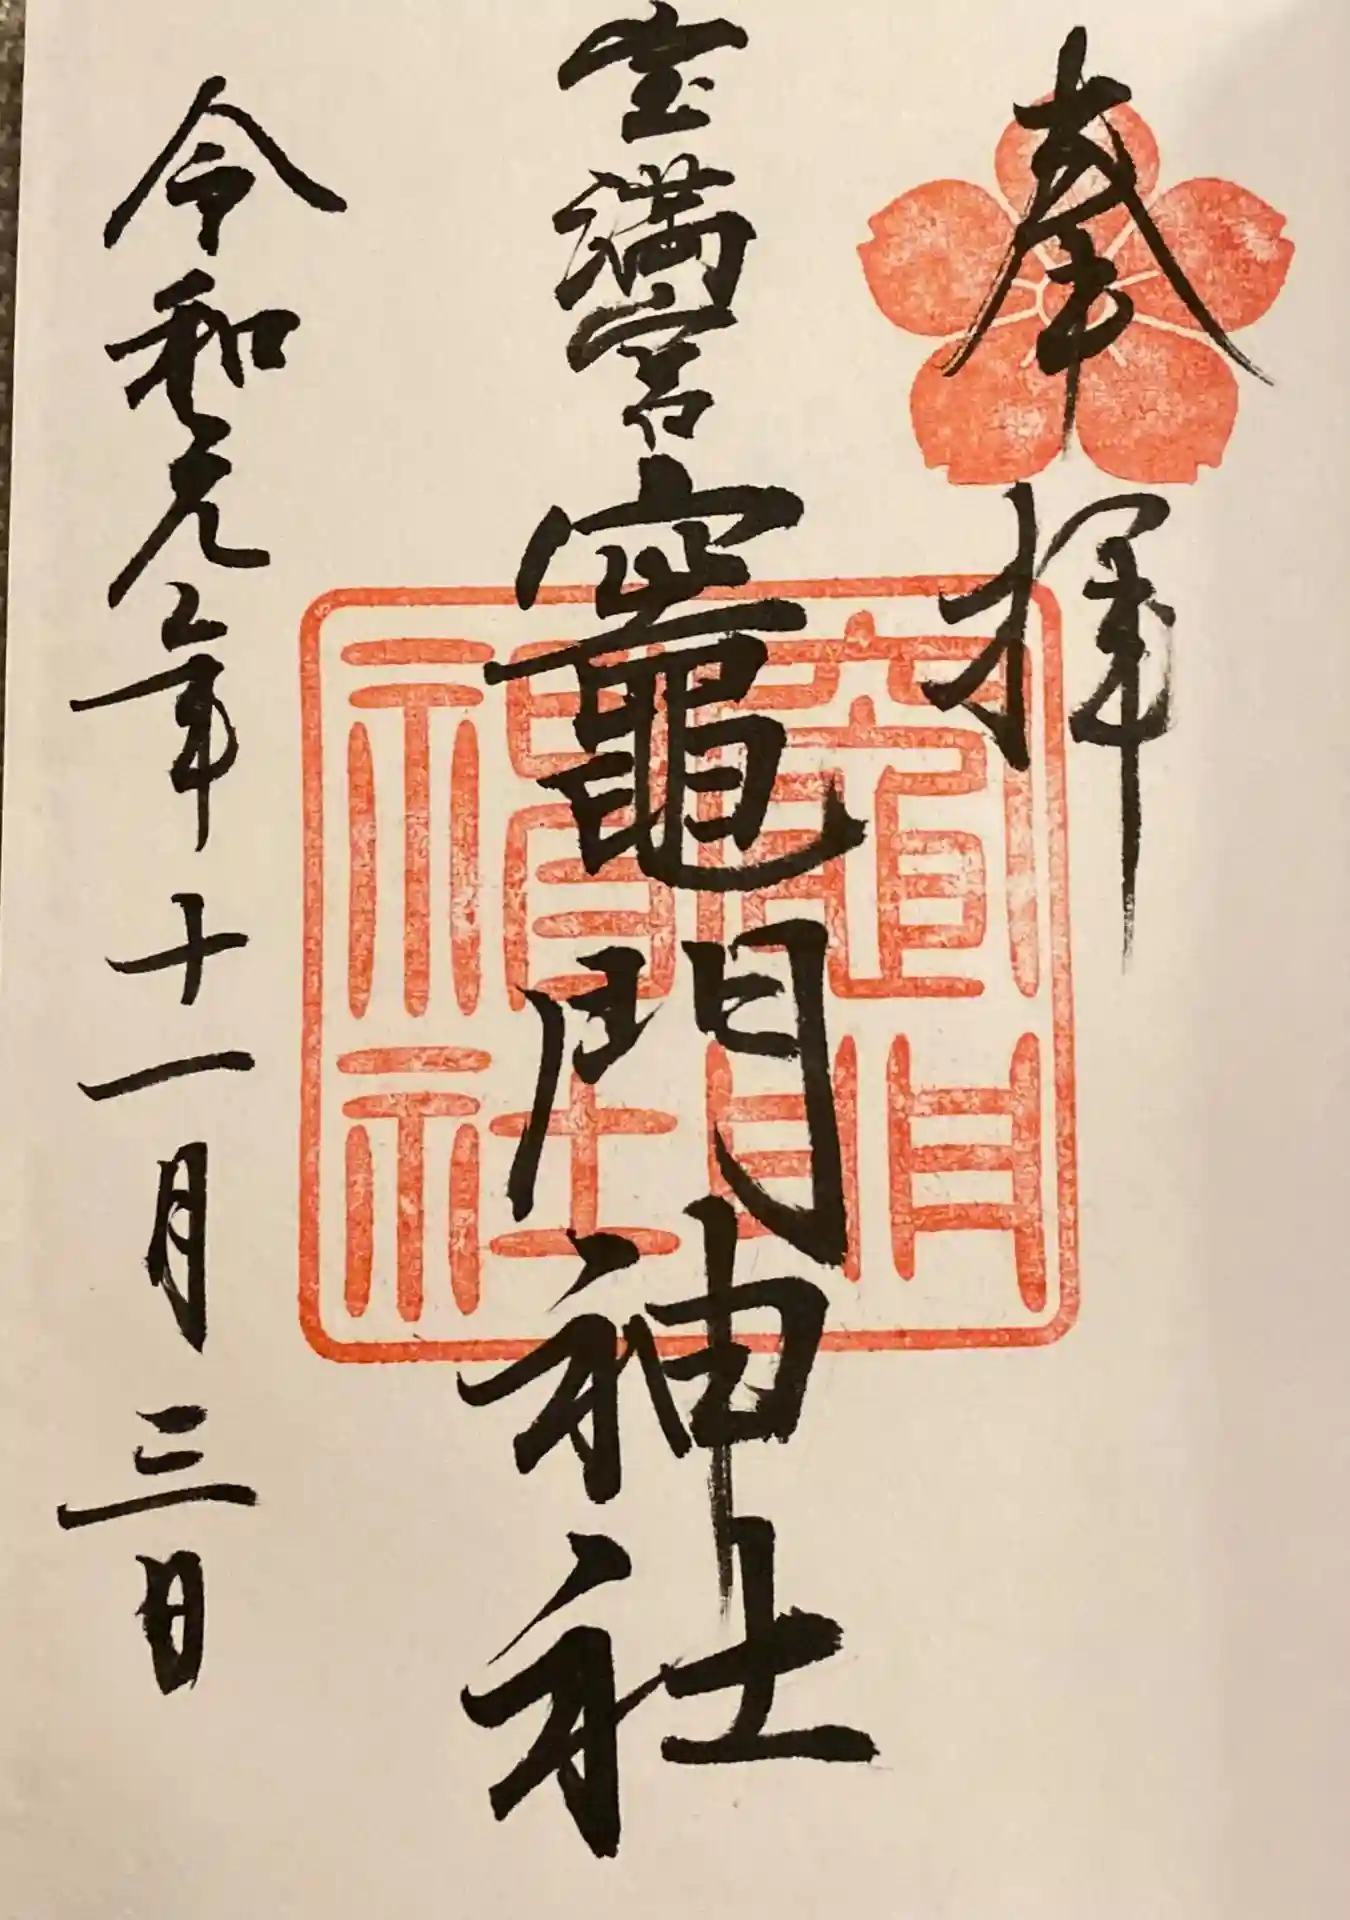 奉拝
宝満宮竈門神社
令和元年十一月三日
竈門
神社